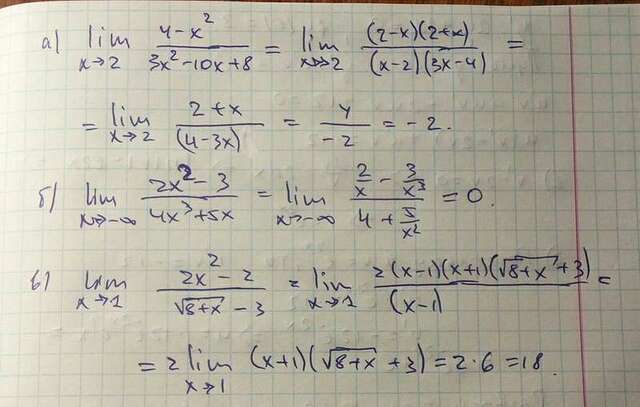 а) lim x→2 (4-x²)/(3x²-10x+8) = lim x→2 ((2-x)(2+x))/((x-2)(3x-4)) =
= lim x→2 (2+x)/((4-3x)) = 4/(-2) = -2.
б) lim x→-∞ (2x²-3)/(4x³+5x) = lim x→-∞ (2/x - 3/x³)/(4 + 5/x²) = 0.
в) lim x→1 (2x²-2)/(√(8+x) - 3) = lim x→1 (2(x-1)(x+1)(√(8+x) + 3))/((x-1) =
= 2 lim x→1 (x+1)(√(8+x) + 3) = 2·6 = 18.